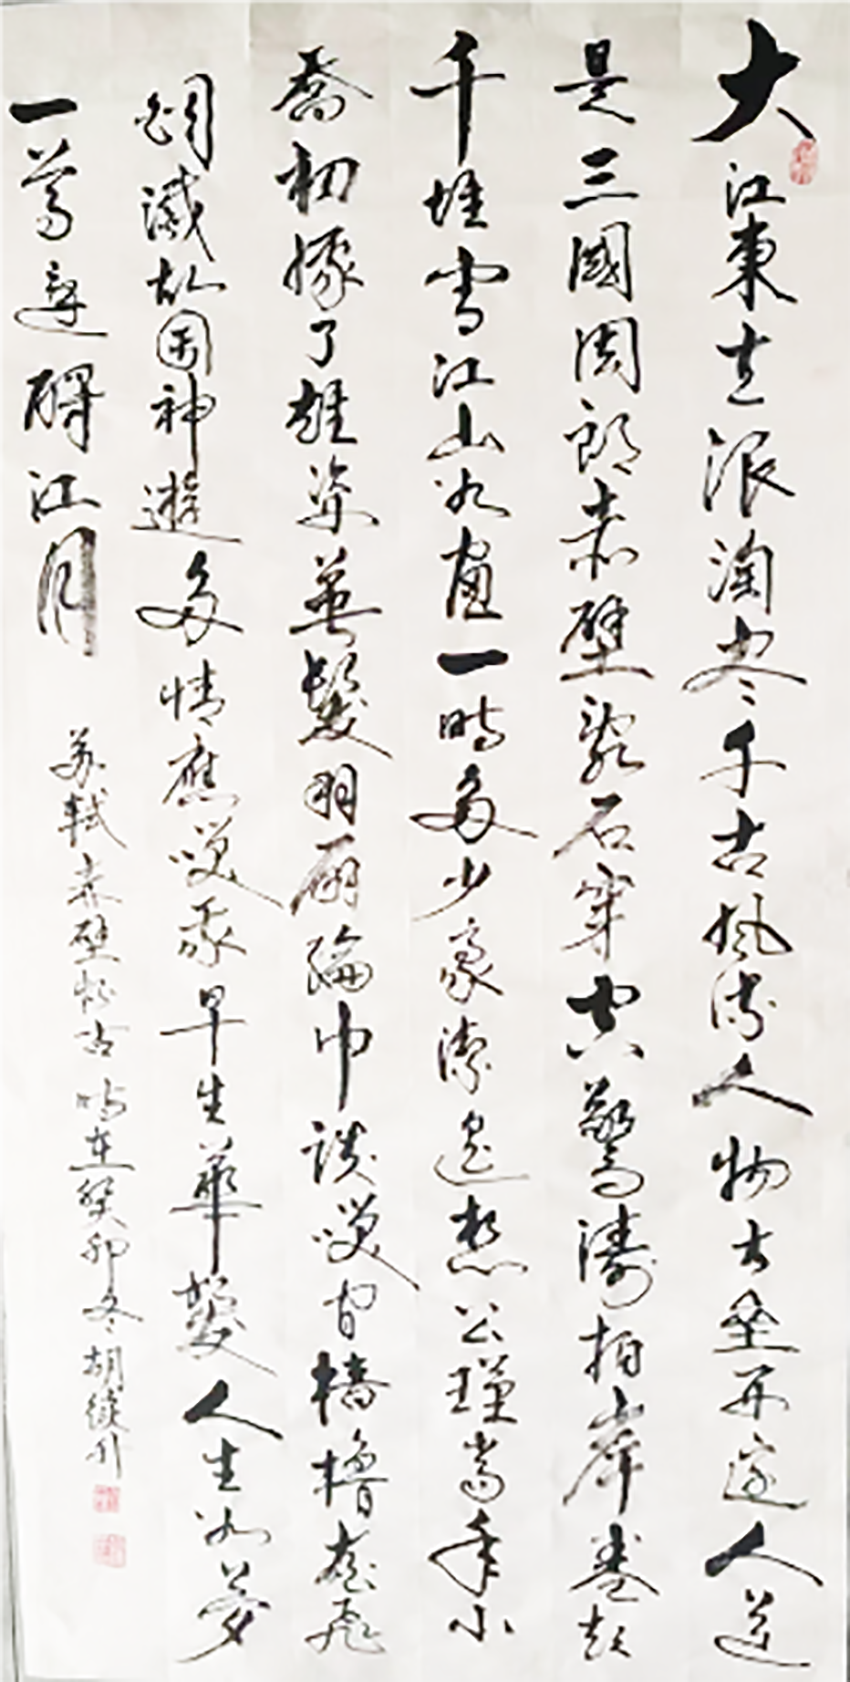 大江東去浪淘尽千古風流人物故垒西邊人道
是三國周郎赤壁亂石穿空驚濤拍岸卷起
千堆雪江山如畫一時多少豪傑遥想公瑾當年小
喬初嫁了雄姿英發羽扇綸巾談咲間檣櫓灰飛
烟滅故国神遊多情應咲我早生華髮人生如夢
一尊還酹江月
苏轼赤壁怀古時在癸卯冬胡續升